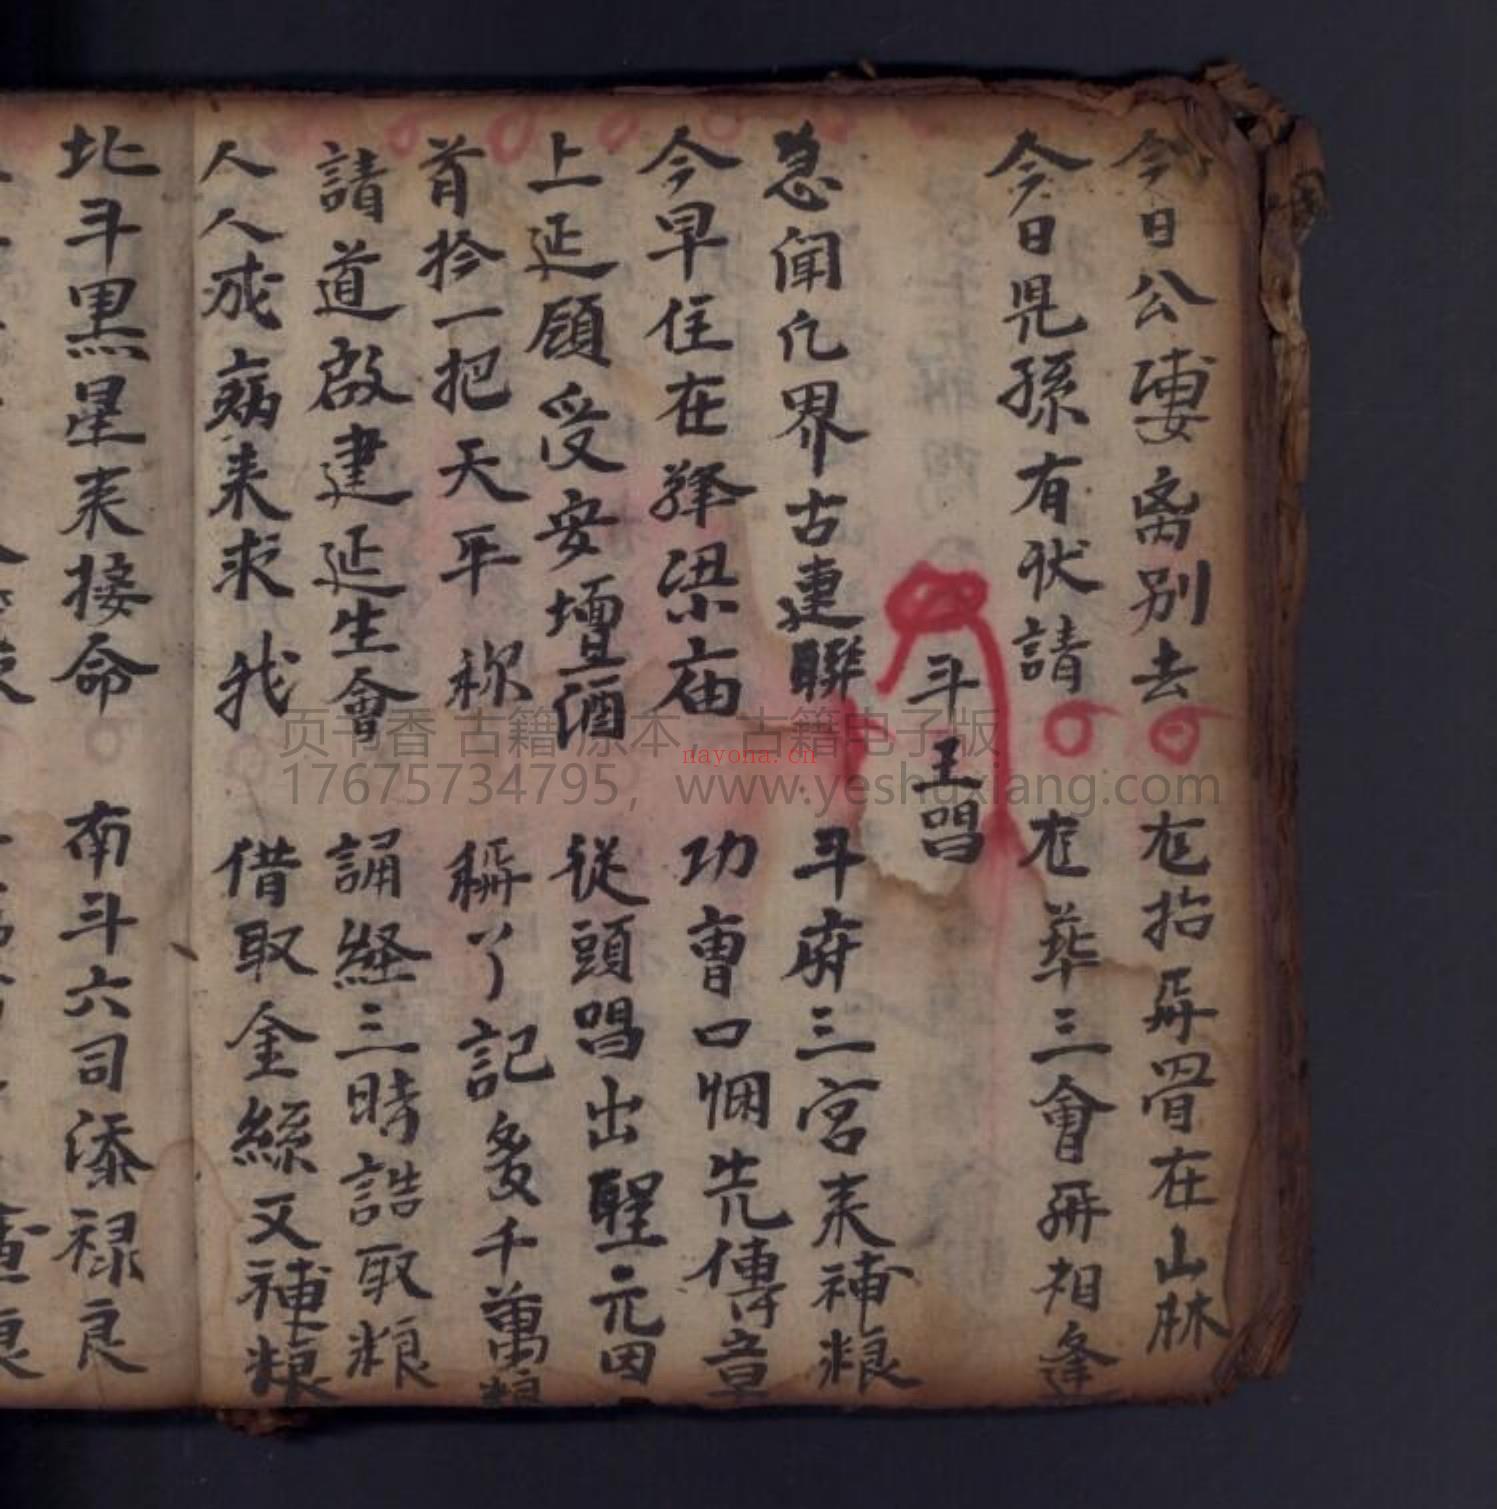 今日公婆离别去 在抬再骨在山林
今日児孫有伏請 在華三會再相逢
斗王唱
忽聞仡界古連聯 斗府三宮来補粮
今早住在絳梁庙 功曹口悃先傳章
上延願受安壇酒 從頭唱出聖元因
首拎一把天平称 稱丫記多千萬粮
請道啟建延生會 誦経三時誥取粮
人人成病来求我 借取金絲又補粮
北斗黑星来接命 南斗六司添禄良
页书香 古籍 原本 古籍电子版
nayona.cn
17675734795，www.yeshuxiang.com